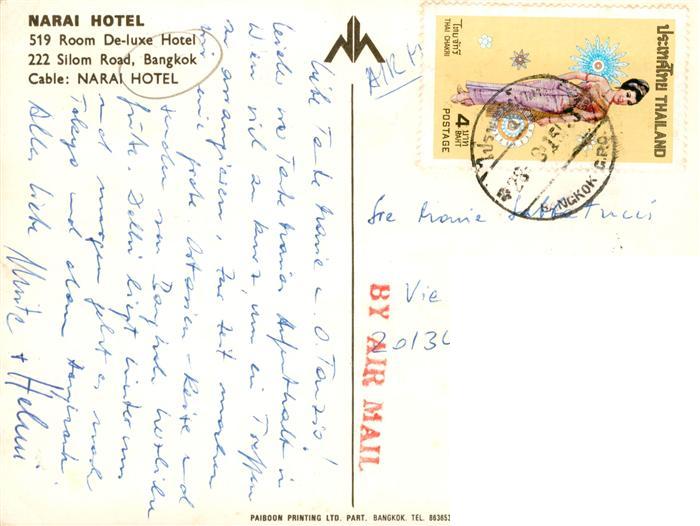 NARAI HOTEL
519 Room De-luxe Hotel
222 Silom Road, Bangkok
Cable: NARAI HOTEL
Liebe Tante Marie u. O. Tonzio!
Leider war Tante Marias Aufenthalt in
Wien viel zu kurz, um ein Treffen
zu arrangieren. Zur Zeit machen
wir eine große Ostasien-Reise und
senden von Bangkok herzliche
Grüße. Delhi liegt hinter uns
und morgen geht es nach
Tokyo und dann Hongkong.
Alles Liebe
+ Helmi
AIR M
ประเทศไทย THAILAND
ไทยจักรี
THAI CHAKRI
4 บาท
BAHT
POSTAGE
BANGKOK G.P.O.
28
Marie
Vie
2013
BY AIR MAIL
PAIBOON PRINTING LTD. PART. BANGKOK. TEL. 86365